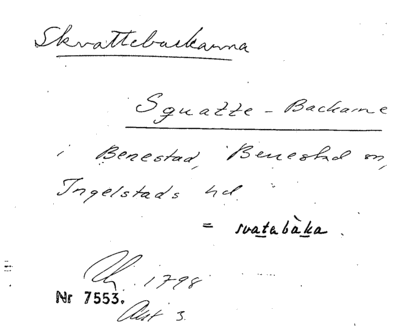 Skvattebackarna
Squatte-Backarne
i Benestad, Benestad sn,
Ingelstads hd
= svatabàka.
1798
Nr 7553.
Akt 3.